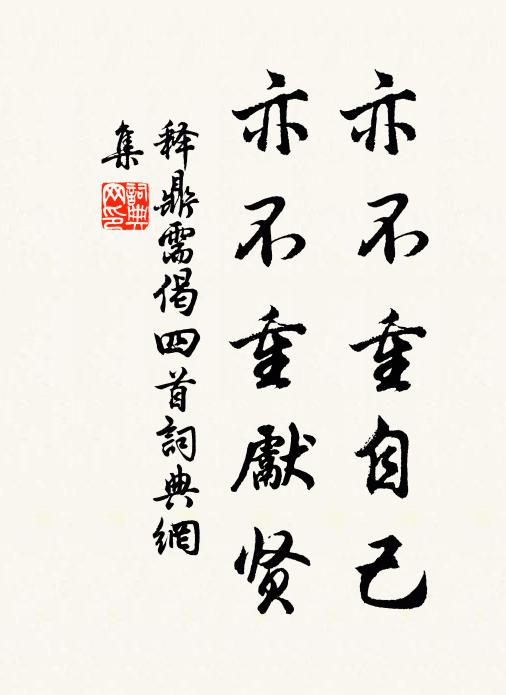 亦不重自己
亦不重獻贤
释鼎需偈四首詞典網
集
詞典
网印